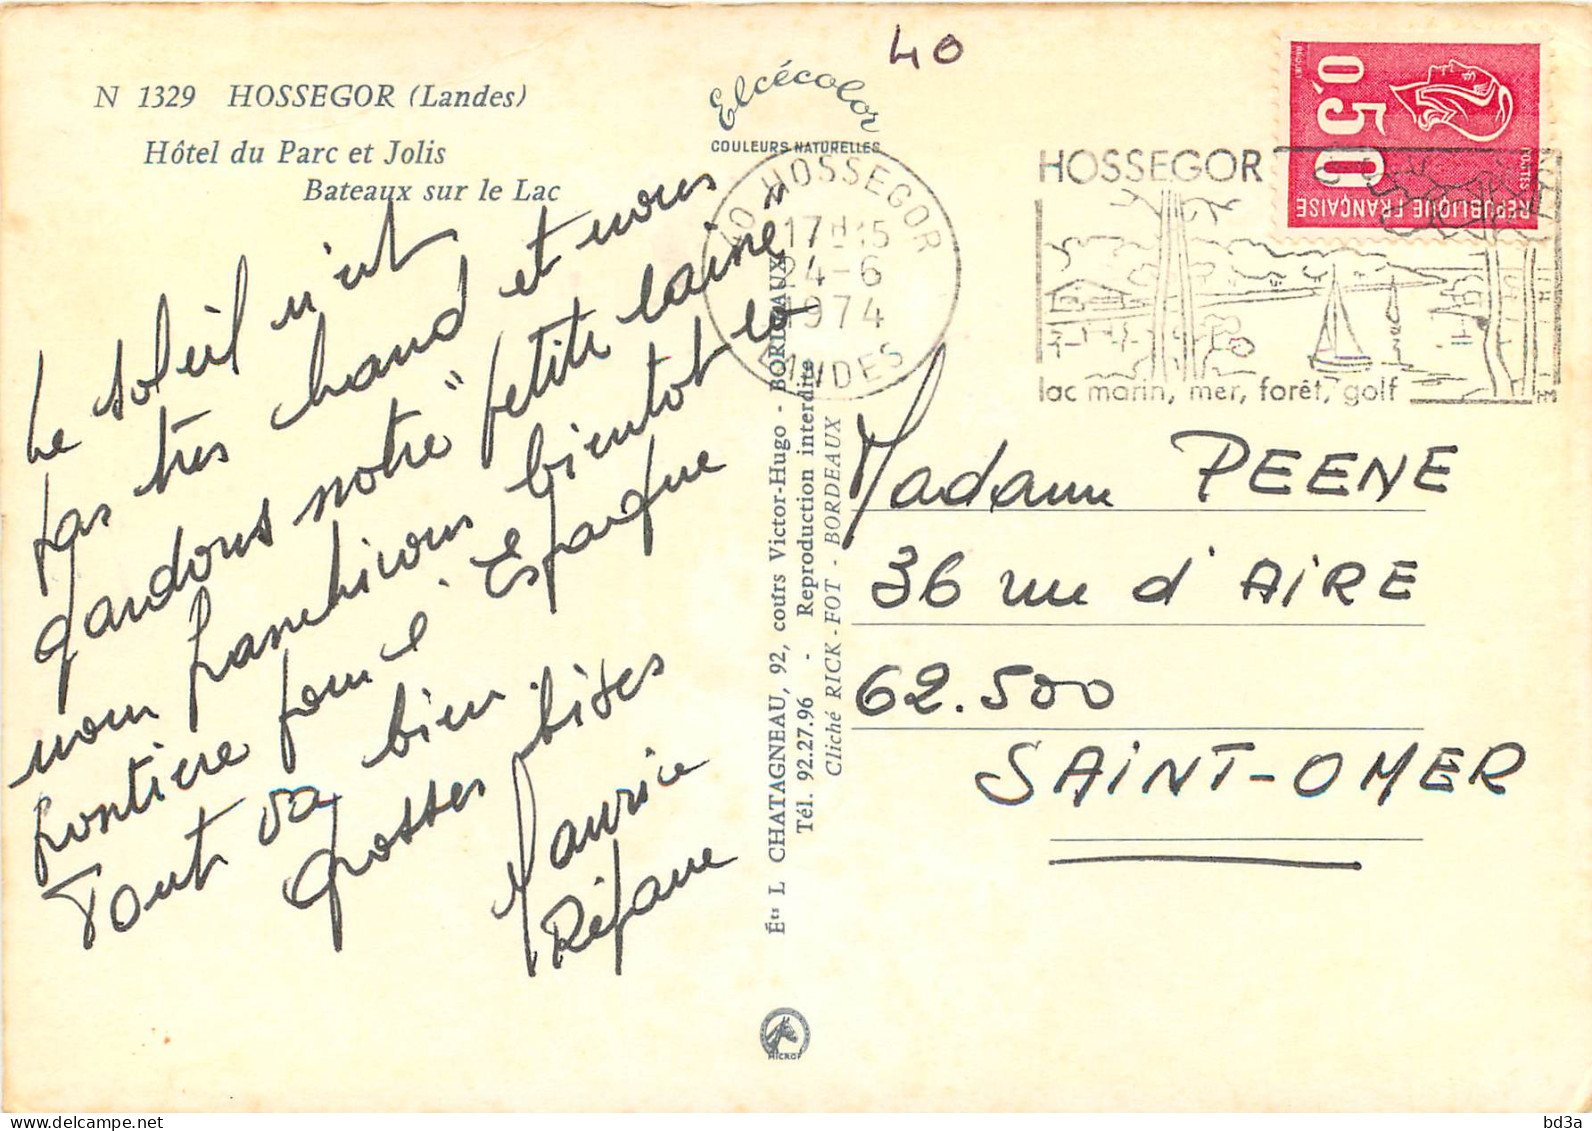 40
N 1329 HOSSEGOR (Landes)
Hôtel du Parc et Jolis
Bateaux sur le Lac
Elcécolor
COULEURS NATURELLES
Le soleil n'est
pas très chaud et nous
gardons notre "petite laine"
nous franchirons bientot la
frontière pour l'Espagne
Tout va bien.
Grosses bises
Maurice
40 HOSSEGOR
17H15
24-6
1974
LANDES
HOSSEGOR
lac marin, mer, forêt, golf
0,50
POSTES
REPUBLIQUE FRANÇAISE
BEQUET
Ets L CHATAGNEAU, 92, cours Victor-Hugo - BORDEAUX
Tél. 92.27.96 - Reproduction interdite
Cliché RICK-FOT - BORDEAUX
Madame PEENE
36 rue d'AiRE
62.500
SAiNT-OMER
MICRO
bd3a